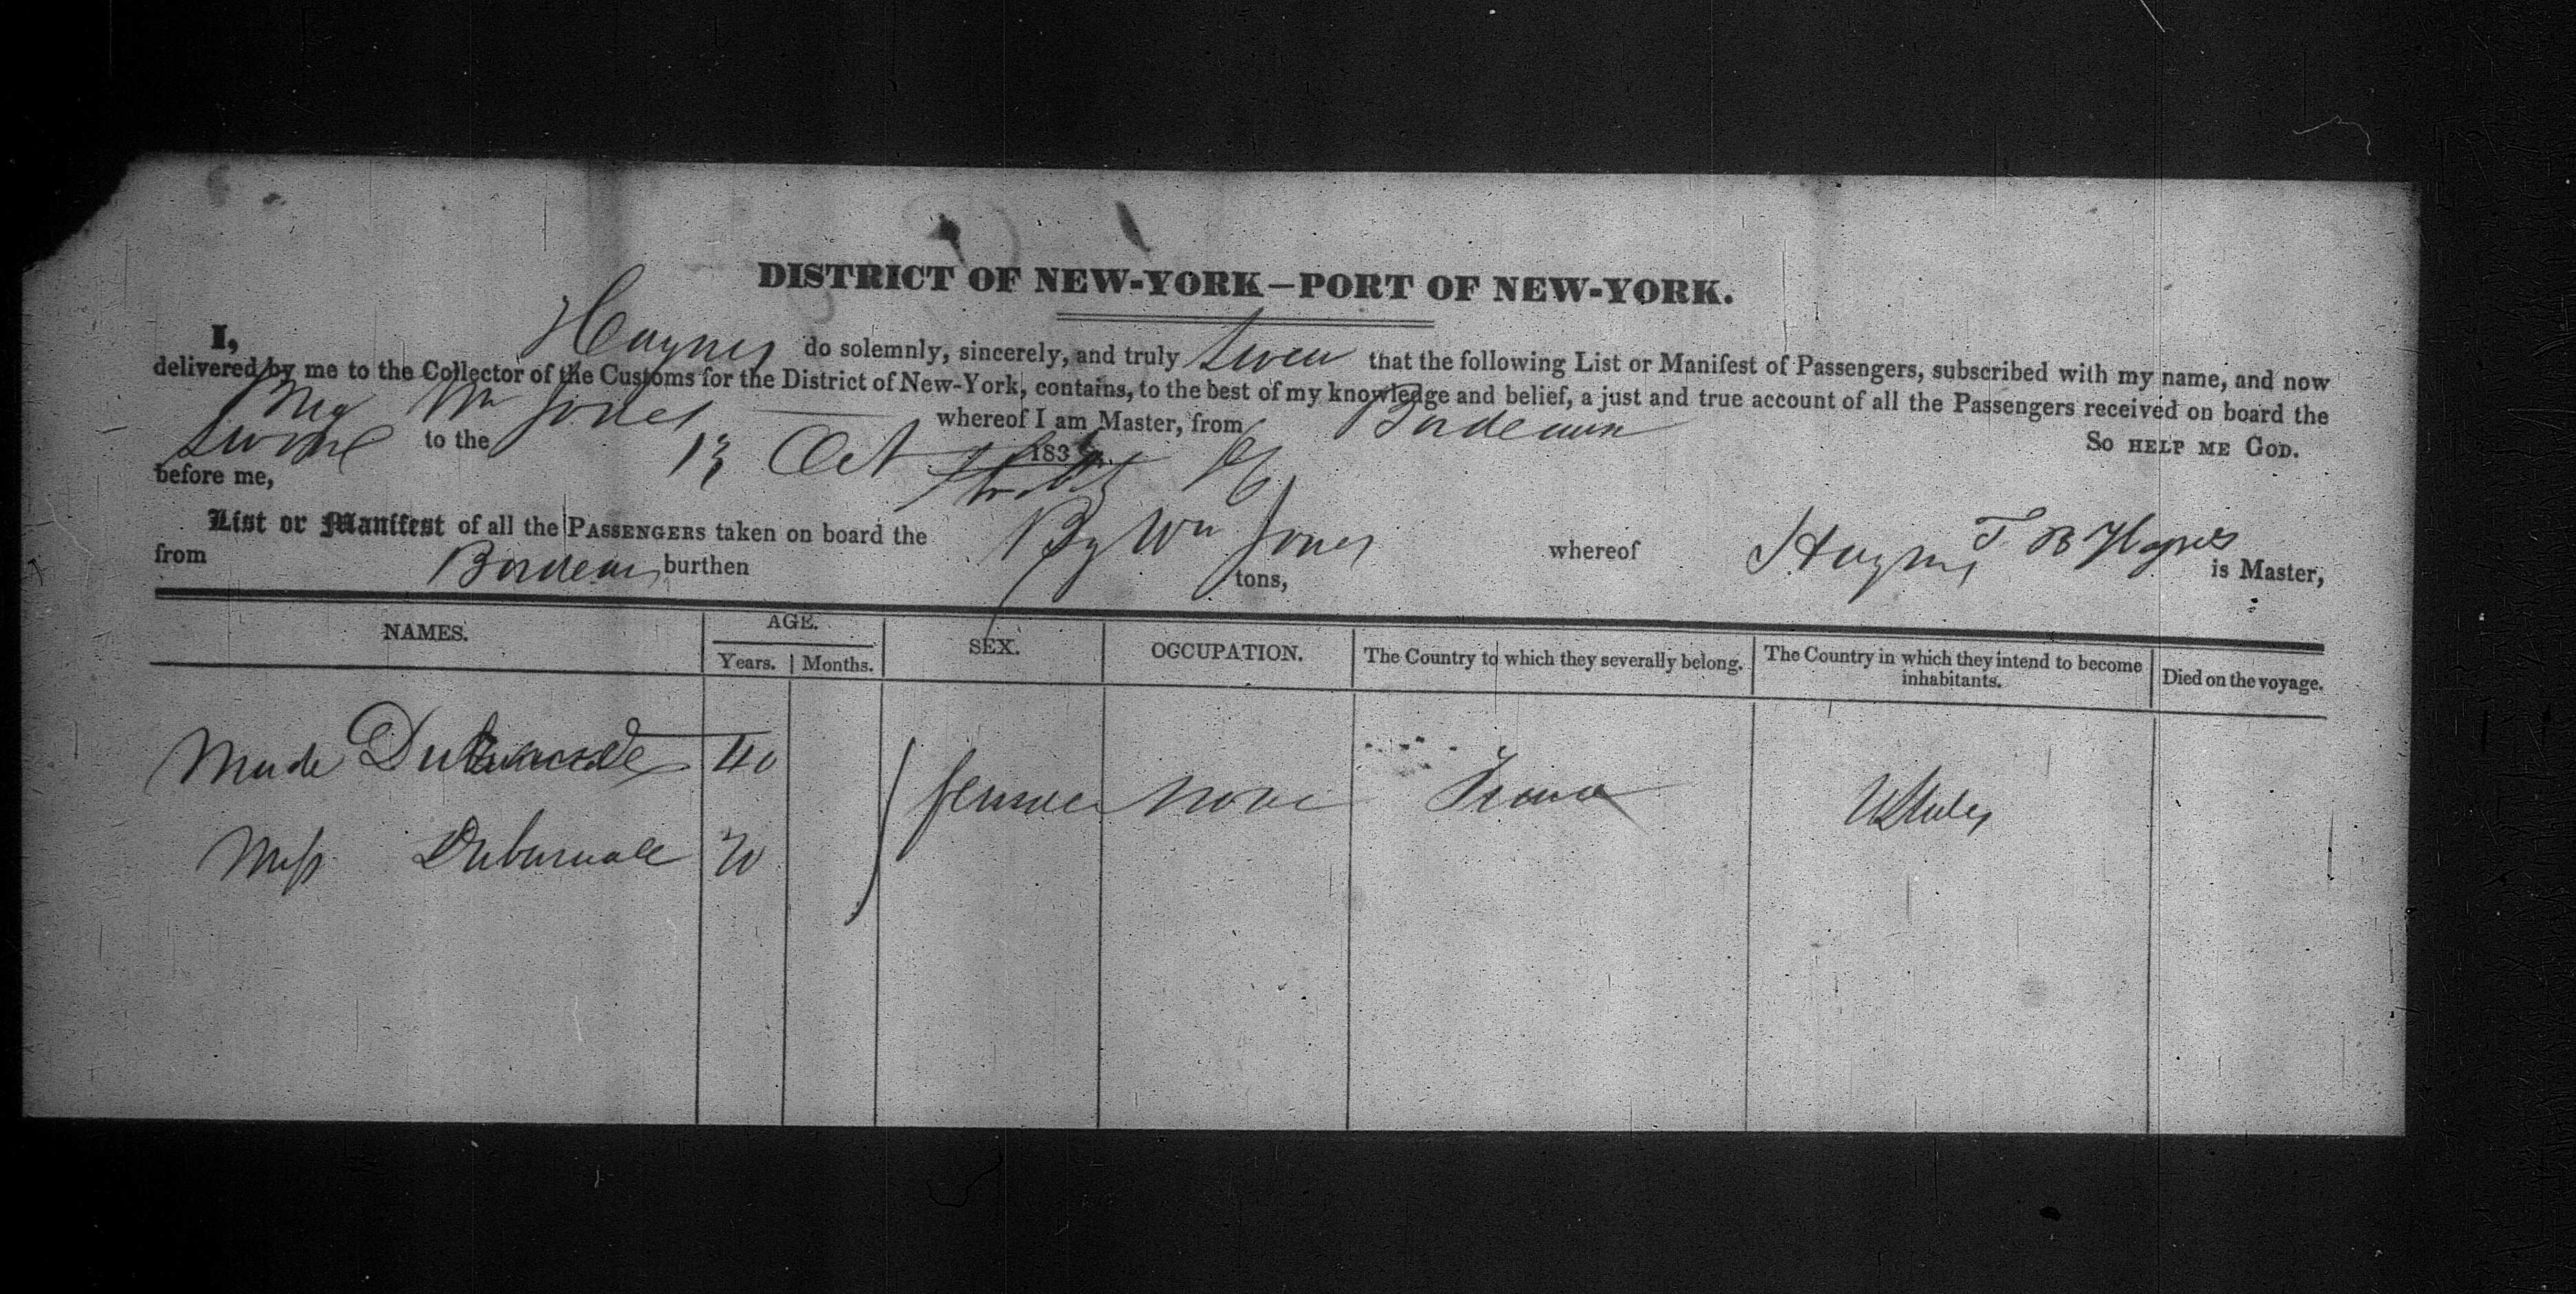 DISTRICT OF NEW-YORK—PORT OF NEW-YORK.
I, Haynes do solemnly, sincerely, and truly swear that the following List or Manifest of Passengers, subscribed with my name, and now
delivered by me to the Collector of the Customs for the District of New-York, contains, to the best of my knowledge and belief, a just and true account of all the Passengers received on board the
Brig Wm Jones whereof I am Master, from Bordeaux
Sworne to the 13 Oct 183 So HELP ME GOD.
before me,
List or Manifest of all the PASSENGERS taken on board the Bg Wm Jones whereof Haynes T B Haynes
from Bordeaux burthen tons, is Master,
NAMES. AGE. SEX. OCCUPATION. The Country to which they severally belong. The Country in which they intend to become inhabitants. Died on the voyage.
Years. Months.
Made 40
female none France UStates
Miss 20